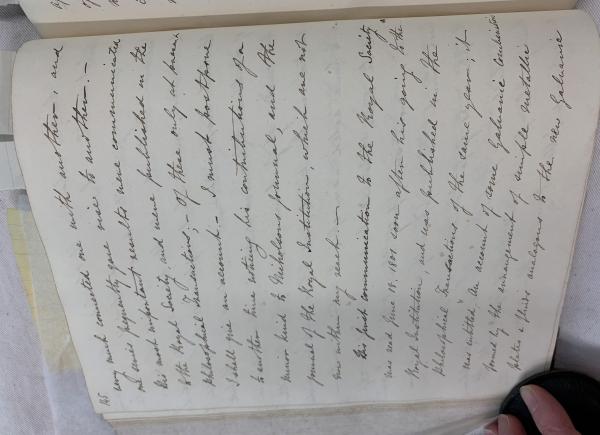 145
very much connected one with another, and
one series frequently gave rise to another. —
His most important results were communicated
to the Royal Society and were published in the
Philosophical Transactions; — Of these only at present
I shall give an account. — I must postpone
to another time noticing his contributions of a
minor kind to Nicholsons Journal, and the
Journal of the Royal Institution, which are not
now within my reach. —
His first communication to the Royal Society
was read June 18. 1801 soon after his going to the
Royal Institution, and was published in the
Philosophical Transactions of the same year; it
was entitled An account of some Galvanic Combinations
formed by the arrangement of simple metallic
plates & fluids analogous to the new Galvanic